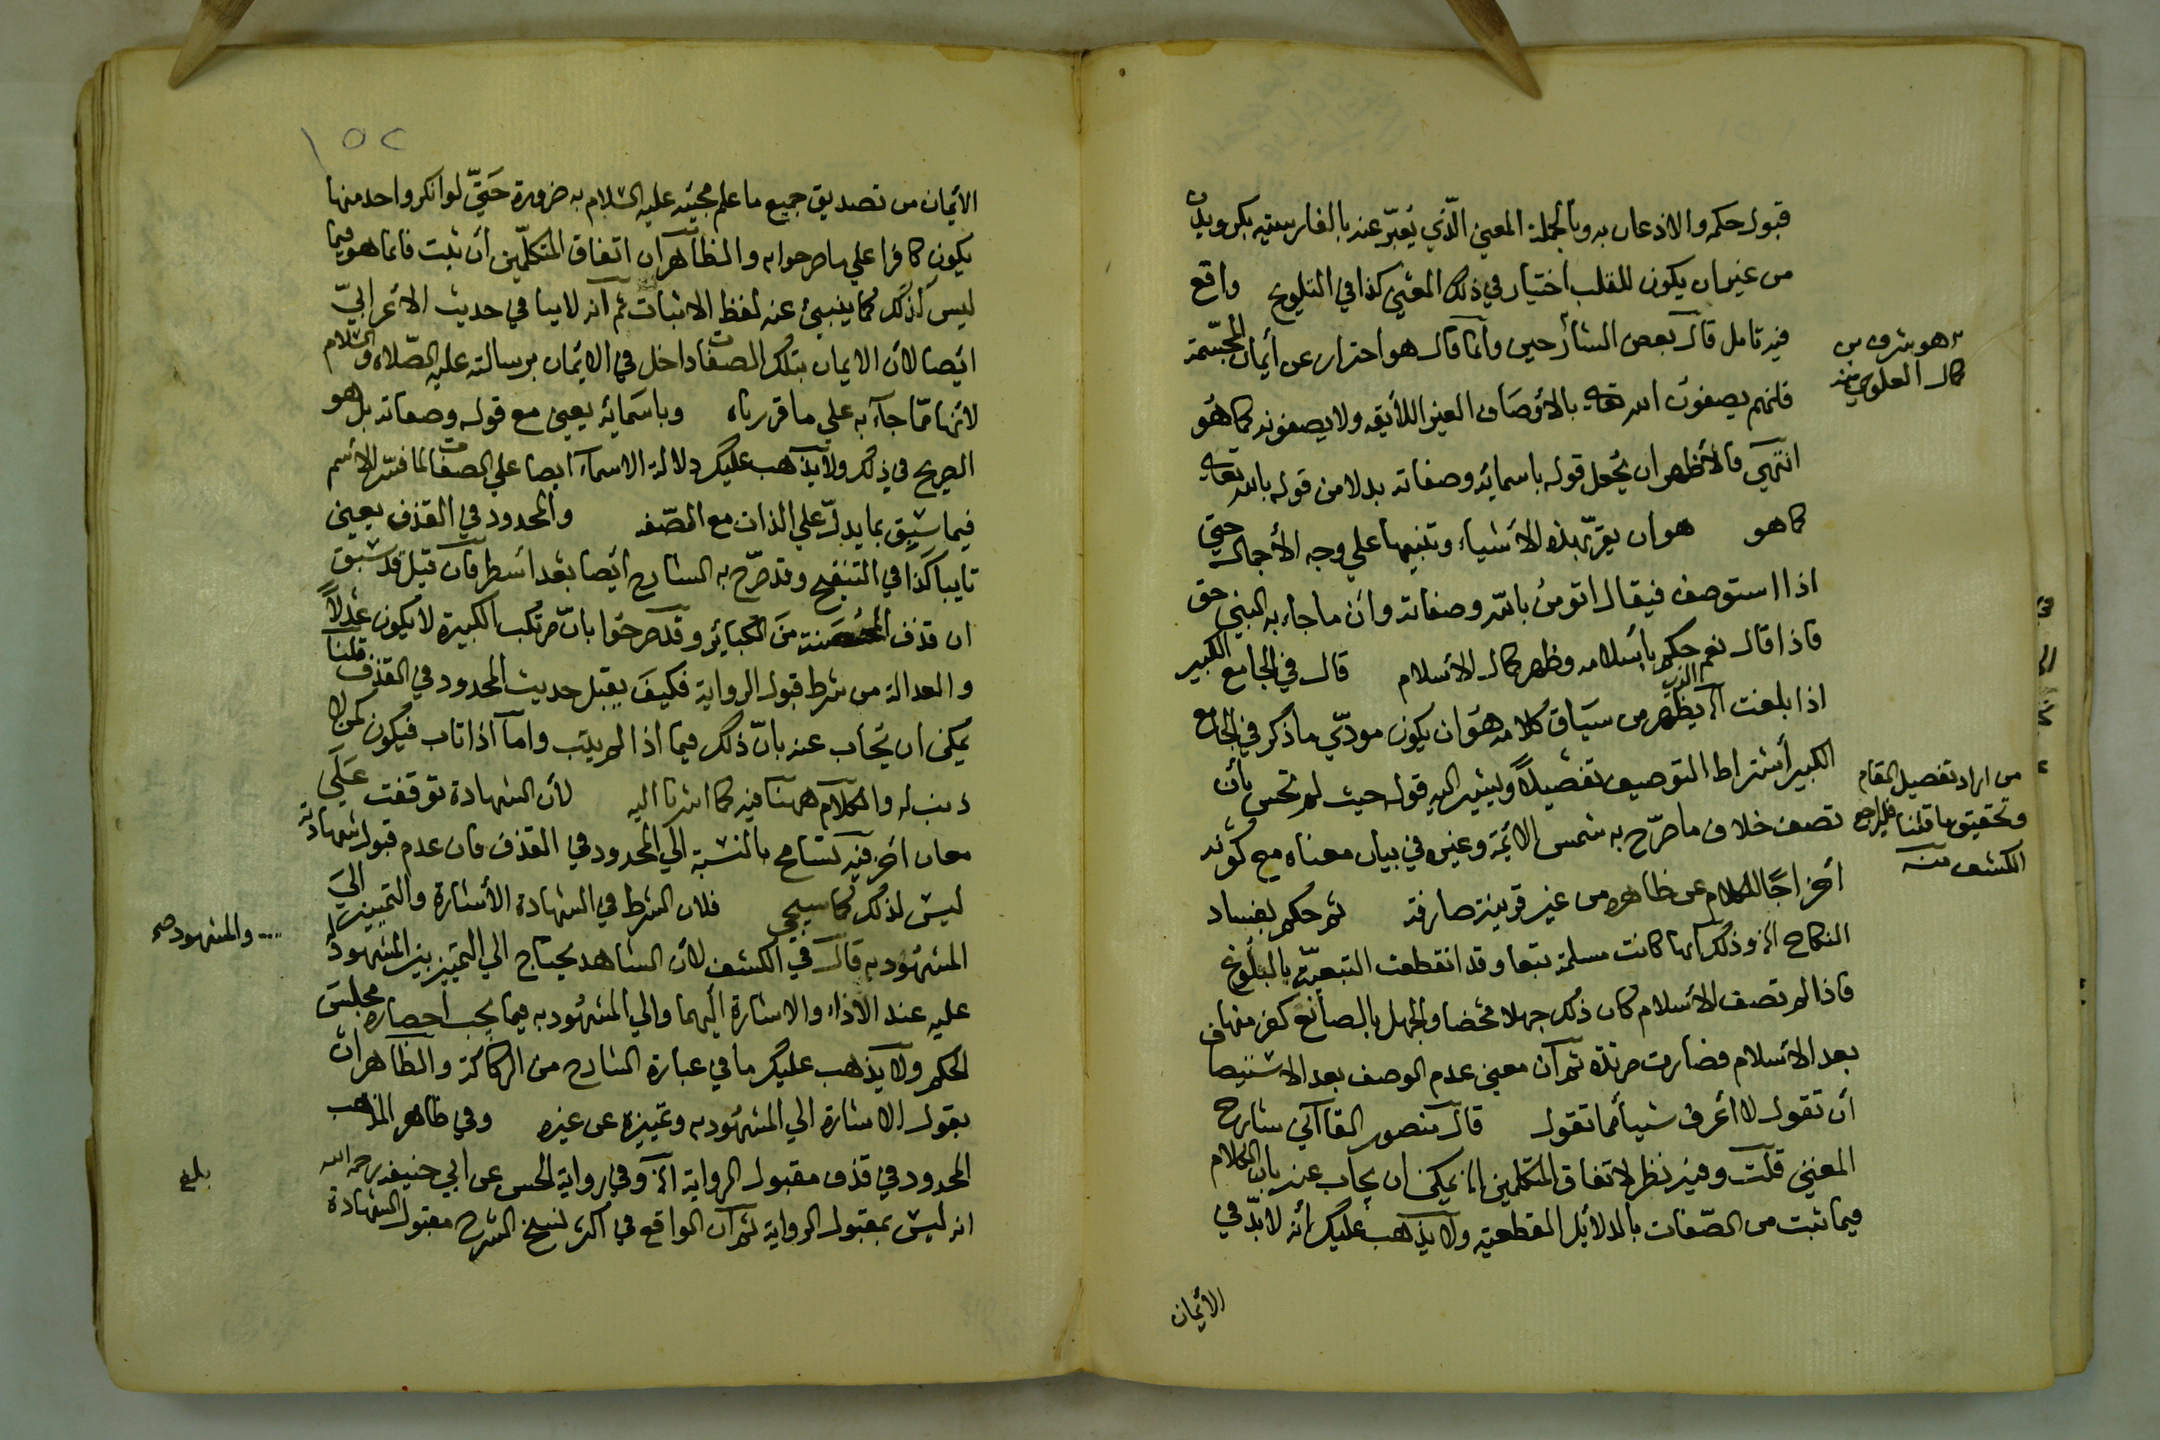 قبول حكمه والاذعان به وبالجملة المعنى الّذي يُعبّر عنه بالفارسية بكرويدن
من غير ان يكون للقلب اختيار في ذلك المعنى كذا في التلويح واقع
فيه تامل قال بعض الشارحين وانما قال هو احتراز عن أيمان المجسّمة
فانهم يصفون الله تعالى بالأوصاف الغير اللايقه ولا يصفونه كما هو
انتهى فالأظهر ان يجعل قوله باسمائه وصفاته بدلا من قوله بالله تعالى
كما هو هو ان يقرّ بهذه الأشياء وتنبيها علي وجه الأجمال حتي
اذا استوصف فيقال اتومن بالله وصفاته وان ما جاء به النبي حق
فاذا قال نعم حكم بأسلامه وظهر كمال الأسلام قال في الجامع الكبير
اذا بلغت الخ الذي يظهر من سياق كلامه هو ان يكون مودّي ما ذكر في الجامع
الكبير أشتراط التوصيف تفصيلاً ويشير اليه قوله حيث لم تحسن بأن
تصف خلاف ما صرّح به شمس الائمة وغيره في بيان معناه مع كونه
أخراجًا للكلام عن ظاهره من غير قرينة صارفة ثم حكم بفساد
النكاح الخ وذلك انها كانت مسلمة تبعا وقد انقطعت التبعيّة بالبلوغ
فاذا لم تصف الأسلام كان ذلك جهلا محضا والجهل بالصانع كفر منها
بعد الأسلام فصارت مرتدة ثم ان معنى عدم الوصف بعد الاستيصا
أن تقول لا اعرف شيأ مما تقول قال منصور القاآني شارح
المغني قلت وفيه نظر لاتفاق المتكلمين الخ يمكن ان يجاب عنه بان الكلام
فيما ثبت من الصّفات بالدلايل القطعية ولا يذهب عليك أنه لا بدّ في
الأيمان
هو شرف بن
كمال العلوي منه
من اراد تفصيل المقام
وتحقيق ما قلنا فليراجع
الكشف منه
١٥٢
الأيمان من تصديق جميع ما علم مجيئه عليه السّلام به ضرورة حَتّي لو انكر واحد منها
يكون كافرا علي ما صرحوا به والظاهر ان اتفاق المتكلّمين أن ثبت فانما هو فيما
ليس كذلك كما ينبئ عنه لفظ الاثبات ثم انه لا ينافي حديث الاعرابيّ
ايضا لأن الايمان بتلك الصفات داخل في الأيمان برسالته عليه الصّلاة والسّلام
لانها ممّا جآء به علي ما قررناه وباسمائه يعني مع قوله وصفاته بل هو
الصريح في ذلك ولا يذهب عليك دلالة الاسمآء ايضا علي الصفات لما فسّر الأسم
فيما سبق بما يدلّ علي الذات مع الصّفه والمحدود في القذف يعني
تايبا كذا في التنقيح وقد صرّح به الشارح أيضا بعد أسطر فان قيل قد سبق
ان قذف المحصنة من الكبائر وقد صرحوا بانّ مرتكب الكبيرة لا يكون عدلاً
والعدالة من شرط قبول الرواية فكيف يقبل حديث المحدود في القذف قلنا
يمكن ان يُجاب عنه بانّ ذلك فيما اذا لم يتب واما اذا تاب فيكون كمن لا
ذنب له والكلام ههنا فيه كما اشرنا اليه لأن الشهادة توقفت عَلَي
معان اخر فيه تسامح بالنسبة الي المحدود في القذف فان عدم قبول شهادته
ليس لذلك كما سيجي فلان الشرط في الشهادة الأشارة والتمييز الي
المشهُود به قال في الكشف لأن الشاهد يحتاج الي التميّز بين المشهود له
عليه عند الأداء والاشارة اليهما والي المشهُود به فيما يجب أحضاره مجلس
الحكم ولا يذهب عليك ما في عبارة الشارح من الركاكة والظاهر ان
يقول الاشارة الي المشهُود به وتمييزه عن غيره وفي ظاهر المذهب
المحدود في قذف مقبول الرواية الخ وفي رواية الحسن عن ابي حنيفه رحمه الله
انه ليس بمقبول الرواية ثم ان الواقع في اكثر نسخ الشرح مقبول الشهادة
والمشهود صح
بلغ